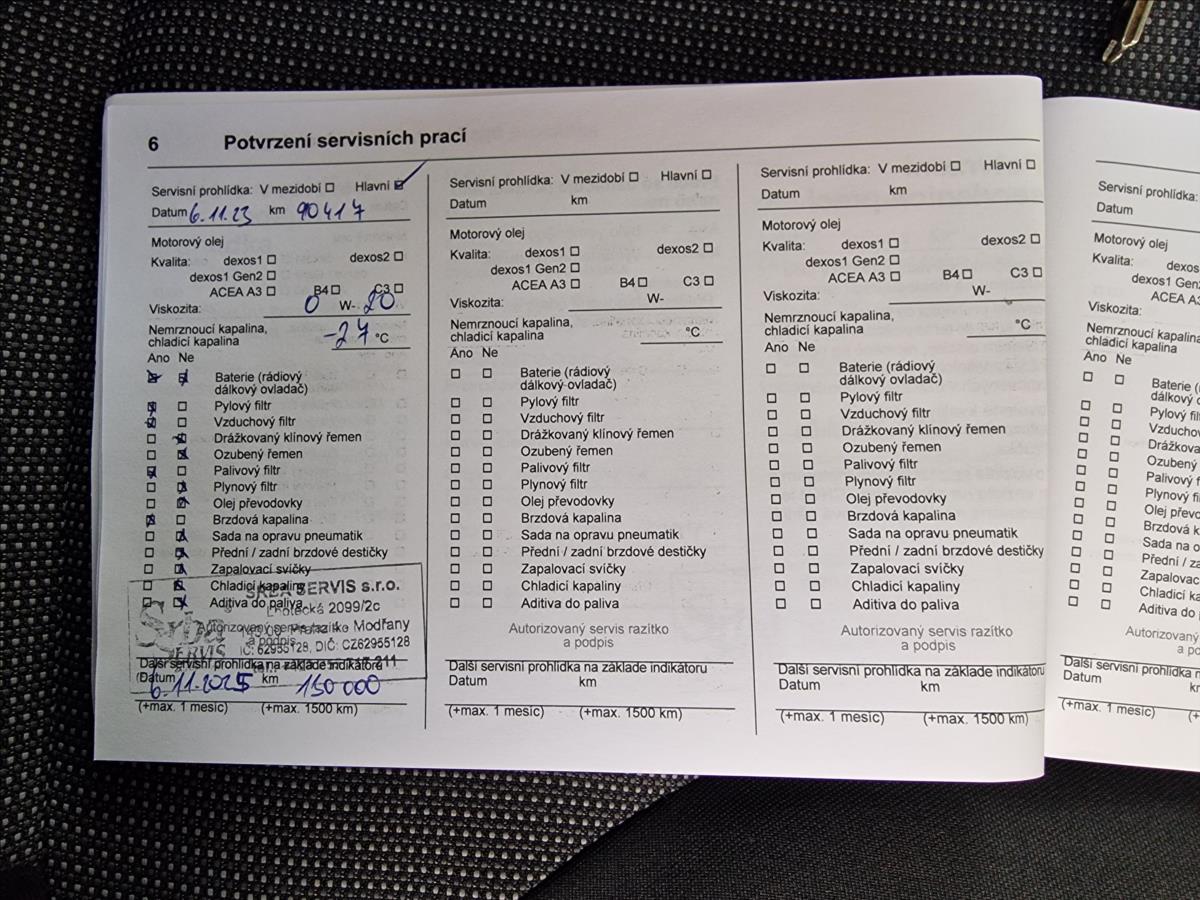 6 Potvrzení servisních prací
Servisní prohlídka: V mezidobí Hlavní
Datum 6.11.23 km 90417
Motorový olej
Kvalita: dexos1 dexos2
dexos1 Gen2
ACEA A3 B4 C3
Viskozita: 0 W- 20
Nemrznoucí kapalina,
chladicí kapalina -27 °C
Ano Ne
Baterie (rádiový
dálkový ovladač)
Pylový filtr
Vzduchový filtr
Drážkovaný klínový řemen
Ozubený řemen
Palivový filtr
Plynový filtr
Olej převodovky
Brzdová kapalina
Sada na opravu pneumatik
Přední / zadní brzdové destičky
Zapalovací svíčky
Chladicí kapaliny
Aditiva do paliva
SRBA SERVIS s.r.o.
Lhotecká 2099/2c
143 00 Praha 4 - Modřany
IČ: 62955128, DIČ: CZ62955128
Srba
SERVIS
Autorizovaný servis razítko
a podpis
Další servisní prohlídka na základě indikátoru
Datum 6.11.2025 km 150 000
(+max. 1 mesic) (+max. 1500 km)
Servisní prohlídka: V mezidobí Hlavní
Datum km
Motorový olej
Kvalita: dexos1 dexos2
dexos1 Gen2
ACEA A3 B4 C3
Viskozita: W-
Nemrznoucí kapalina,
chladicí kapalina °C
Ano Ne
Baterie (rádiový
dálkový ovladač)
Pylový filtr
Vzduchový filtr
Drážkovaný klínový řemen
Ozubený řemen
Palivový filtr
Plynový filtr
Olej převodovky
Brzdová kapalina
Sada na opravu pneumatik
Přední / zadní brzdové destičky
Zapalovací svíčky
Chladicí kapaliny
Aditiva do paliva
Autorizovaný servis razítko
a podpis
Další servisní prohlídka na základe indikátoru
Datum km
(+max. 1 mesic) (+max. 1500 km)
Servisní prohlídka: V mezidobí Hlavní
Datum km
Motorový olej
Kvalita: dexos1 dexos2
dexos1 Gen2
ACEA A3 B4 C3
Viskozita: W-
Nemrznoucí kapalina,
chladicí kapalina °C
Ano Ne
Baterie (rádiový
dálkový ovladač)
Pylový filtr
Vzduchový filtr
Drážkovaný klínový řemen
Ozubený řemen
Palivový filtr
Plynový filtr
Olej převodovky
Brzdová kapalina
Sada na opravu pneumatik
Přední / zadní brzdové destičky
Zapalovací svíčky
Chladicí kapaliny
Aditiva do paliva
Autorizovaný servis razítko
a podpis
Další servisní prohlídka na základe indikátoru
Datum km
(+max. 1 mesic) (+max. 1500 km)
Servisní prohlídka:
Datum
Motorový olej
Kvalita: dexos
dexos1 Gen2
ACEA A3
Viskozita:
Nemrznoucí kapalina
chladicí kapalina
Ano Ne
Baterie (r
dálkový o
Pylový filt
Vzduchov
Drážkova
Ozubený
Palivový f
Plynový f
Olej převo
Brzdová k
Sada na o
Přední / z
Zapalovac
Chladicí ka
Aditiva do p
Autorizovaný
a po
Další servisní prohlídka n
Datum
(+max. 1 mesic) (+